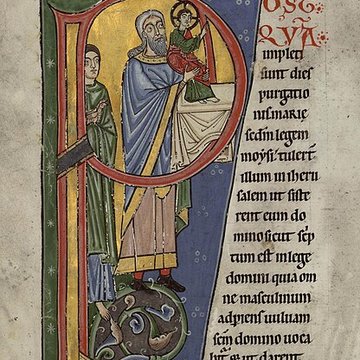 OST
QVA
impleti
sunt dies
purgatio
nis marie
sedm legem
moysi tulert
illum in iheru
salem ut siste
rent eum do
mino sicut scp
tum est in lege
domini quia om
ne masculinum
adpiens vuluam
scm domino uoca